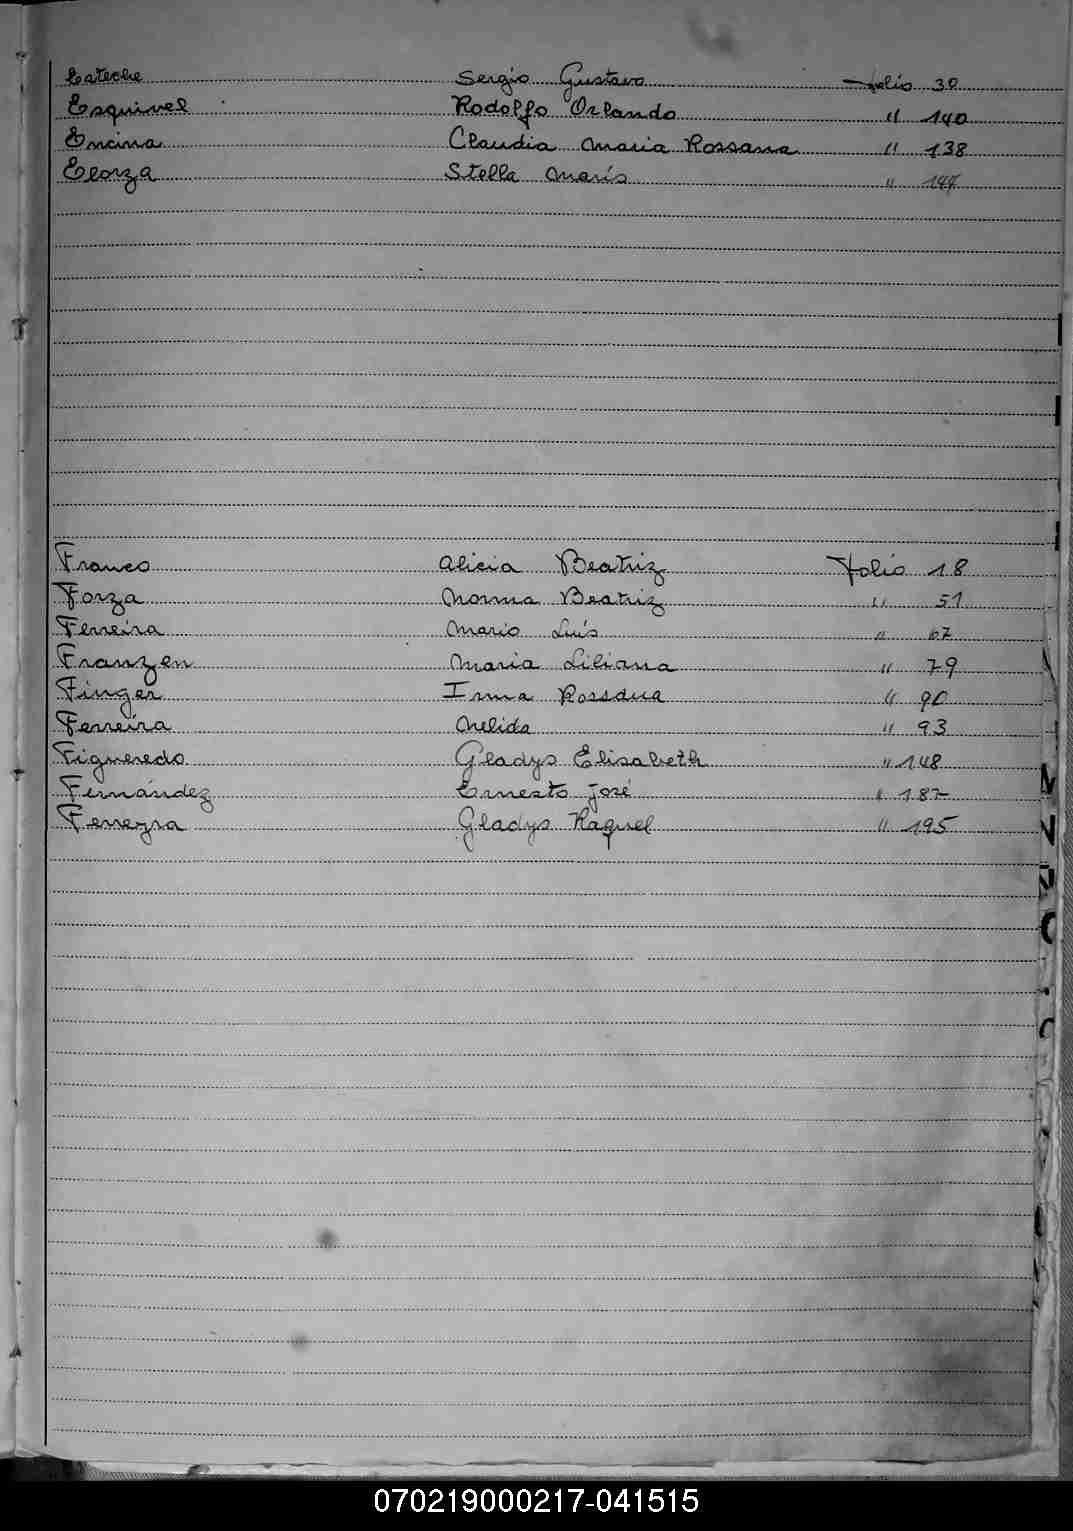 Eateche Sergio Gustavo Folio 30
Esquivel Rodolfo Orlando " 140
Encina Claudia Maria Rossana " 138
Elorza Stella Maris " 144
Franco Alicia Beatriz Folio 18
Forza Norma Beatriz " 51
Ferreira Mario Luís " 67
Franzen Maria Liliana " 79
Finger Irma Rossana " 90
Ferreira Nelida " 93
Figueredo Gladys Elisabeth " 148
Fernández Ernesto José " 187
Ferreyra Gladys Raquel " 195
070219000217-041515